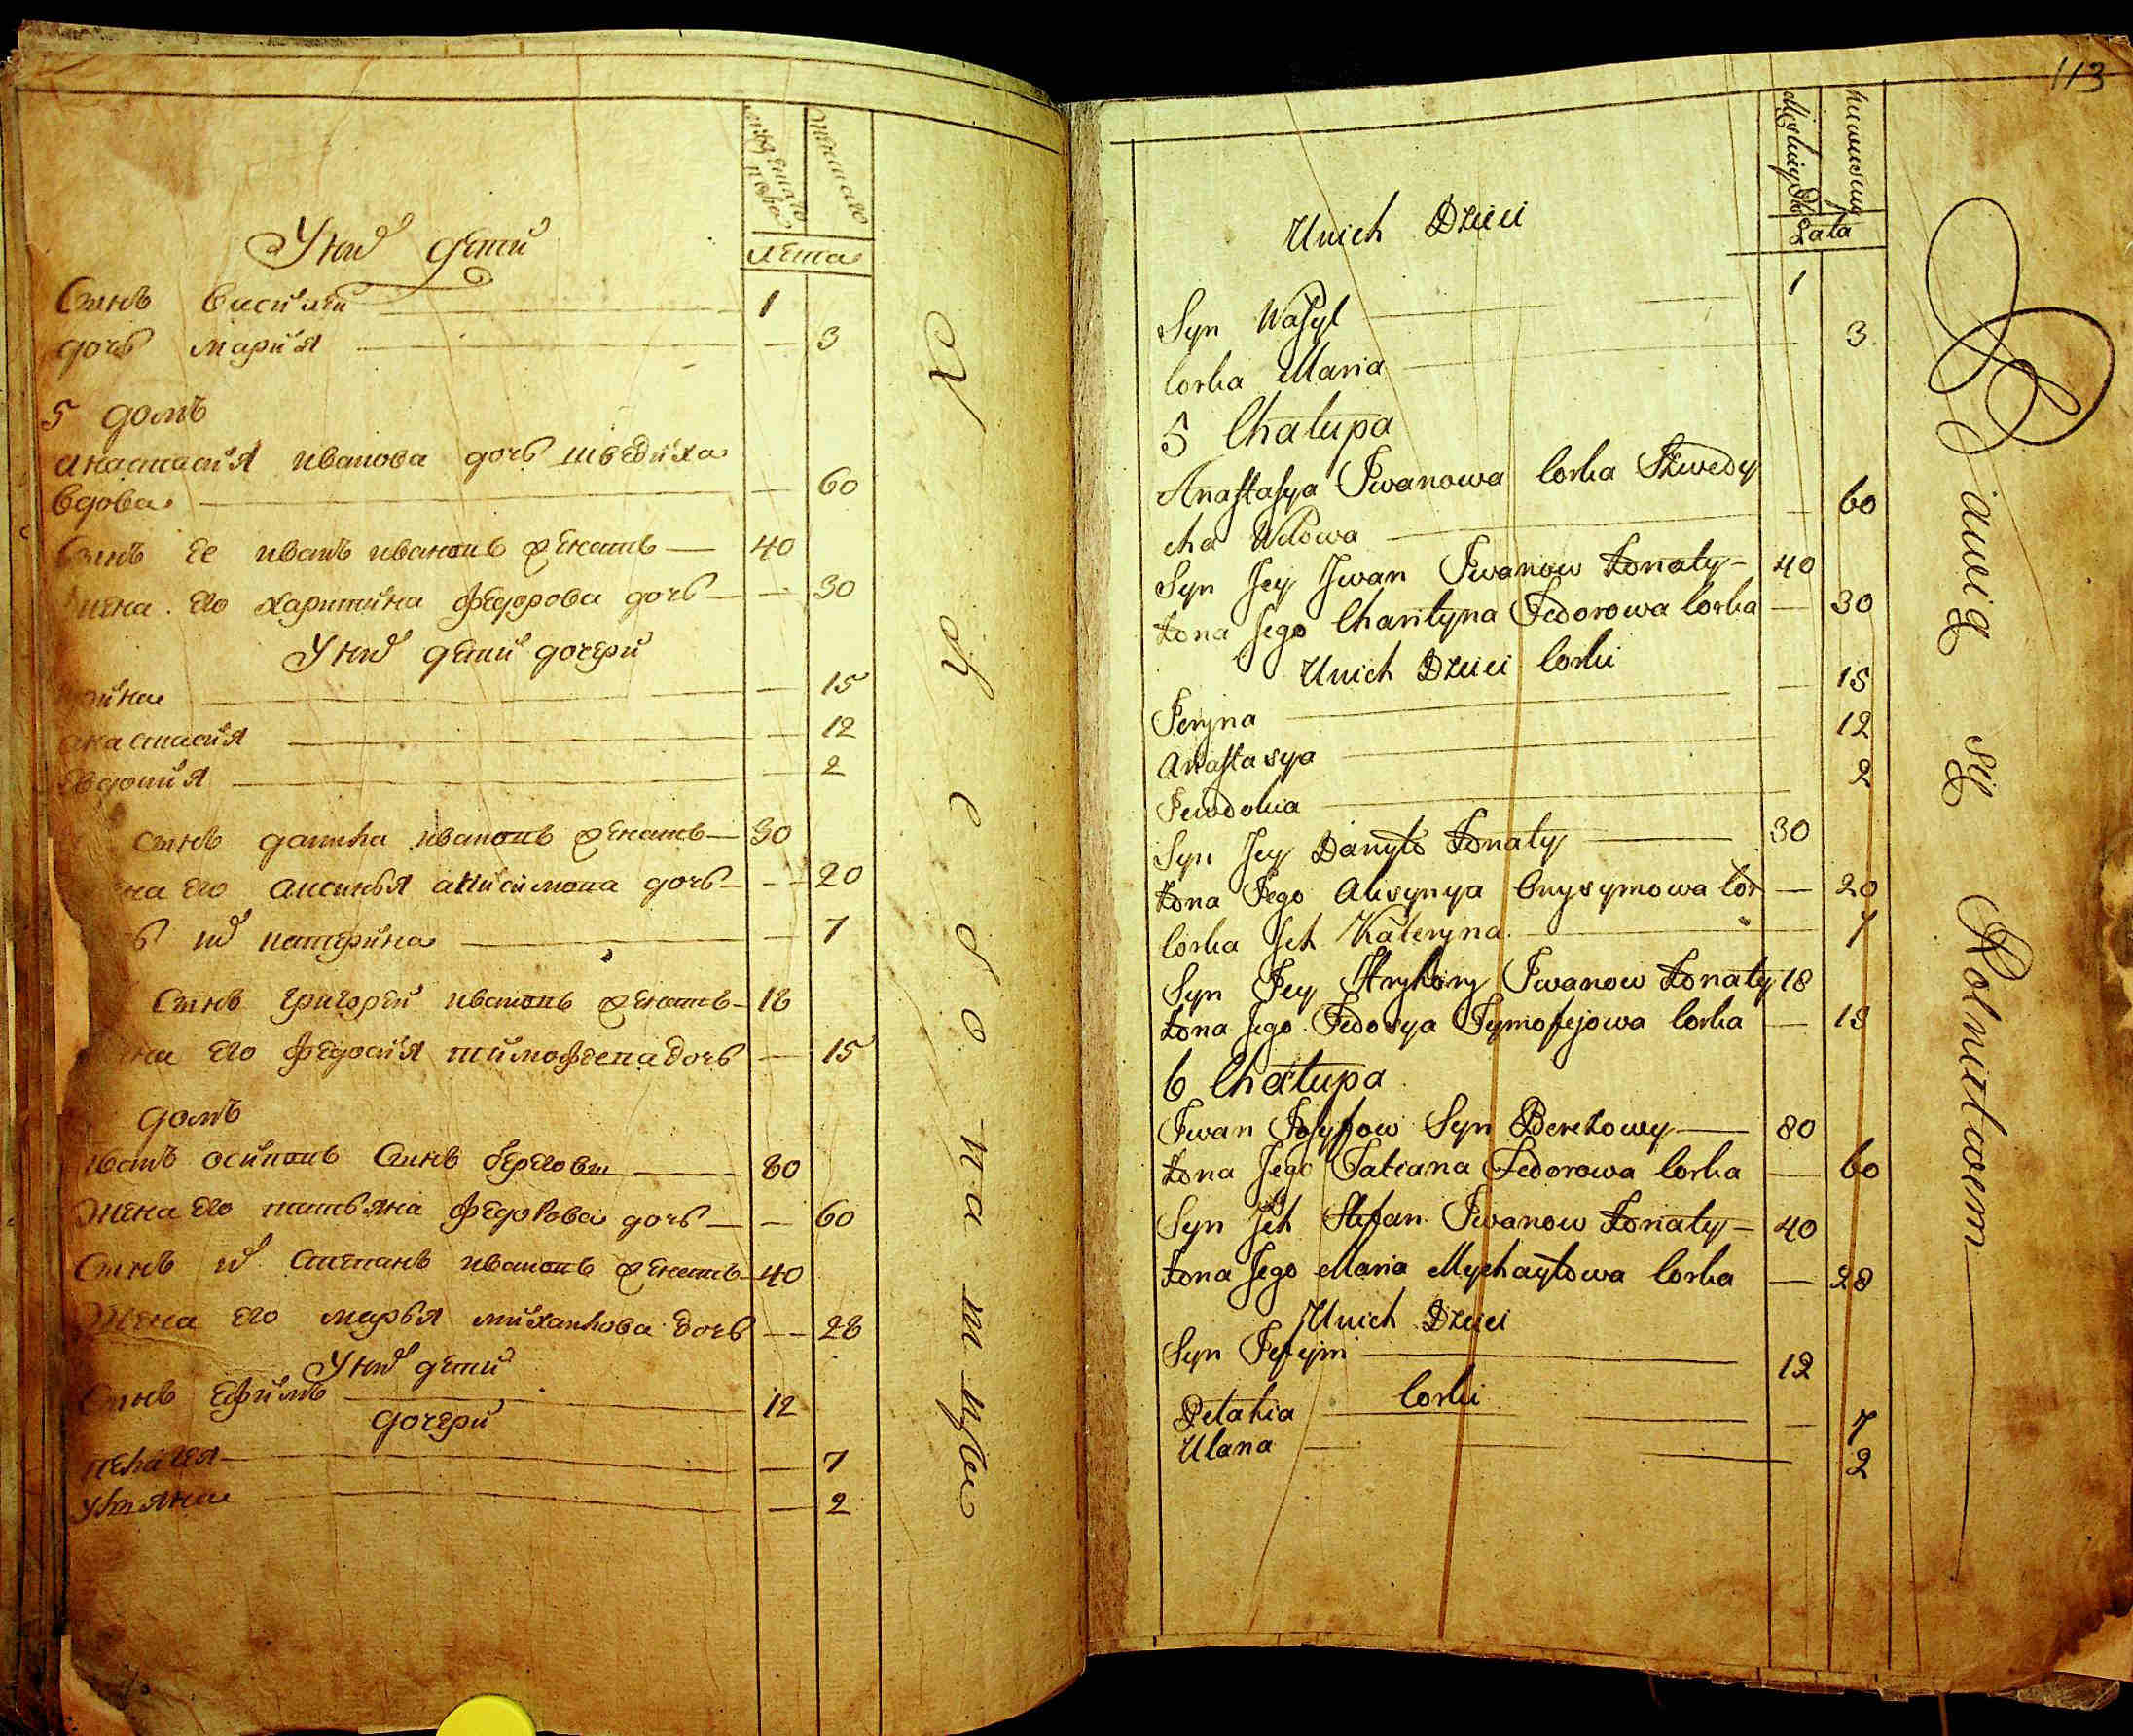 мужеска пола
женска
лета
У них дети
Сынъ василей 1
дочь мария 3
5 домъ
анастасия иванова дочь шведиха
вдова 60
Сынъ ее иванъ ивановъ женатъ 40
жена его харитина федорова дочь 30
У них дети дочери
15
анастасия 12
евдокия 2
сынъ данила ивановъ женатъ 30
на его аксинья анисимова дочь 20
их катерина 7
Сынъ григорей ивановъ женатъ 18
его федосия тимофеева дочь 15
домъ
иванъ осиповъ Сынъ береговы 80
жена его татьяна федорова дочь 60
Сынъ их степанъ ивановъ женатъ 40
жена его марья михайлова дочь 28
У них дети
Сынъ ефимъ 12
дочери
пелагея 7
ульяна 2
113
Męskiey Płci
Lata
Unich Dzieci
Syn Wasyl 1
Corka Maria 3
5 Chalupa
Anastasya Iwanowa Corka Szwedy
cha Wdowa 60
Syn Jey Iwan Iwanow Żonaty 40
Żona Jego Charityna Fedorowa Corka 30
Unich Dzieci Corki
Jeryna 15
Anastasya 12
Jewdokia 2
Syn Jey Danyło Żonaty 30
Żona Jego Aksynya Onysymowa Cor 20
Corka Jch Kateryna 7
Syn Jey Hryhory Iwanow Żonaty 18
Żona Jego Fedosya Tymofejowa Corka 15
6 Chałupa
Iwan Josyfow Syn Berehowy 80
Żona Jego Tatiana Fedorowa Corka 60
Syn Jch Stefan Iwanow Żonaty 40
Żona Jego Maria Mychayłowa Corka 28
Unich Dzieci
Syn Jefejm 12
Corki
Pelahia 7
Ulana 2
Bawią się Rolnictwem